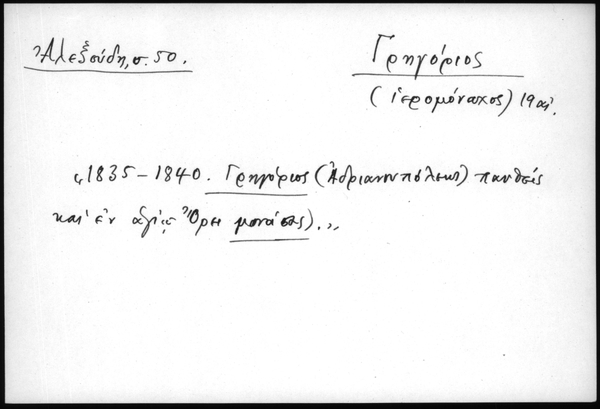 Ἀλεξούδη, σ. 50.
Γρηγόριος
(ἱερομόναχος) 19 αἰ.
“1835 – 1840. Γρηγόριος (Ἀδριανουπόλεως) παυθείς
καὶ ἐν ἁγίῳ Ὄρει μονάσας).„